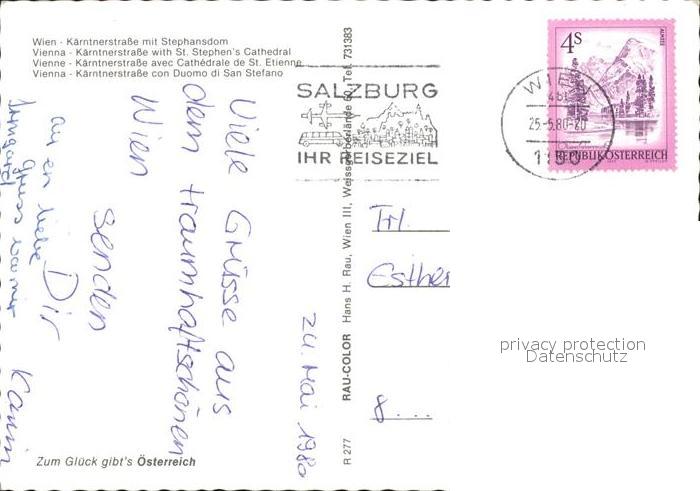 Wien - Kärntnerstraße mit Stephansdom
Vienna - Kärntnerstraße with St. Stephen's Cathedral
Vienne - Kärntnerstraße avec Cathédrale de St. Etienne
Vienna - Kärntnerstraße con Duomo di San Stefano
24. Mai 1980
Viele Grüsse aus
dem traumhaftschönen
Wien
senden
Dir
Karin
liebe
Zum Glück gibt's Österreich
R 277 RAU-COLOR Hans H. Rau, Wien III, Weissgerberlände 50, Tel. 731383
SALZBURG
IHR REISEZIEL
WIEN
25.-5.80-20
1150
4S
ALMSEE
REPUBLIK ÖSTERREICH
Frl.
Esther
8...
privacy protection
Datenschutz